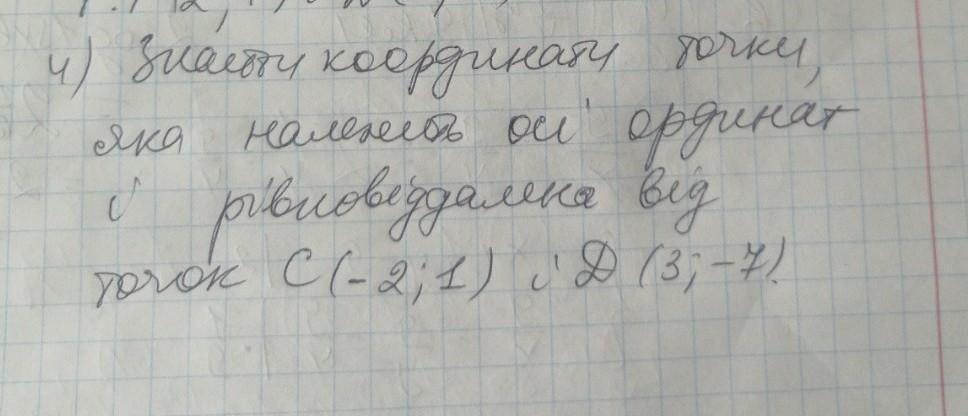 4) Знайти координати точки,
яка належить осі ординат
і рівновіддалена від
точок С(-2;1) і D (3;-7).